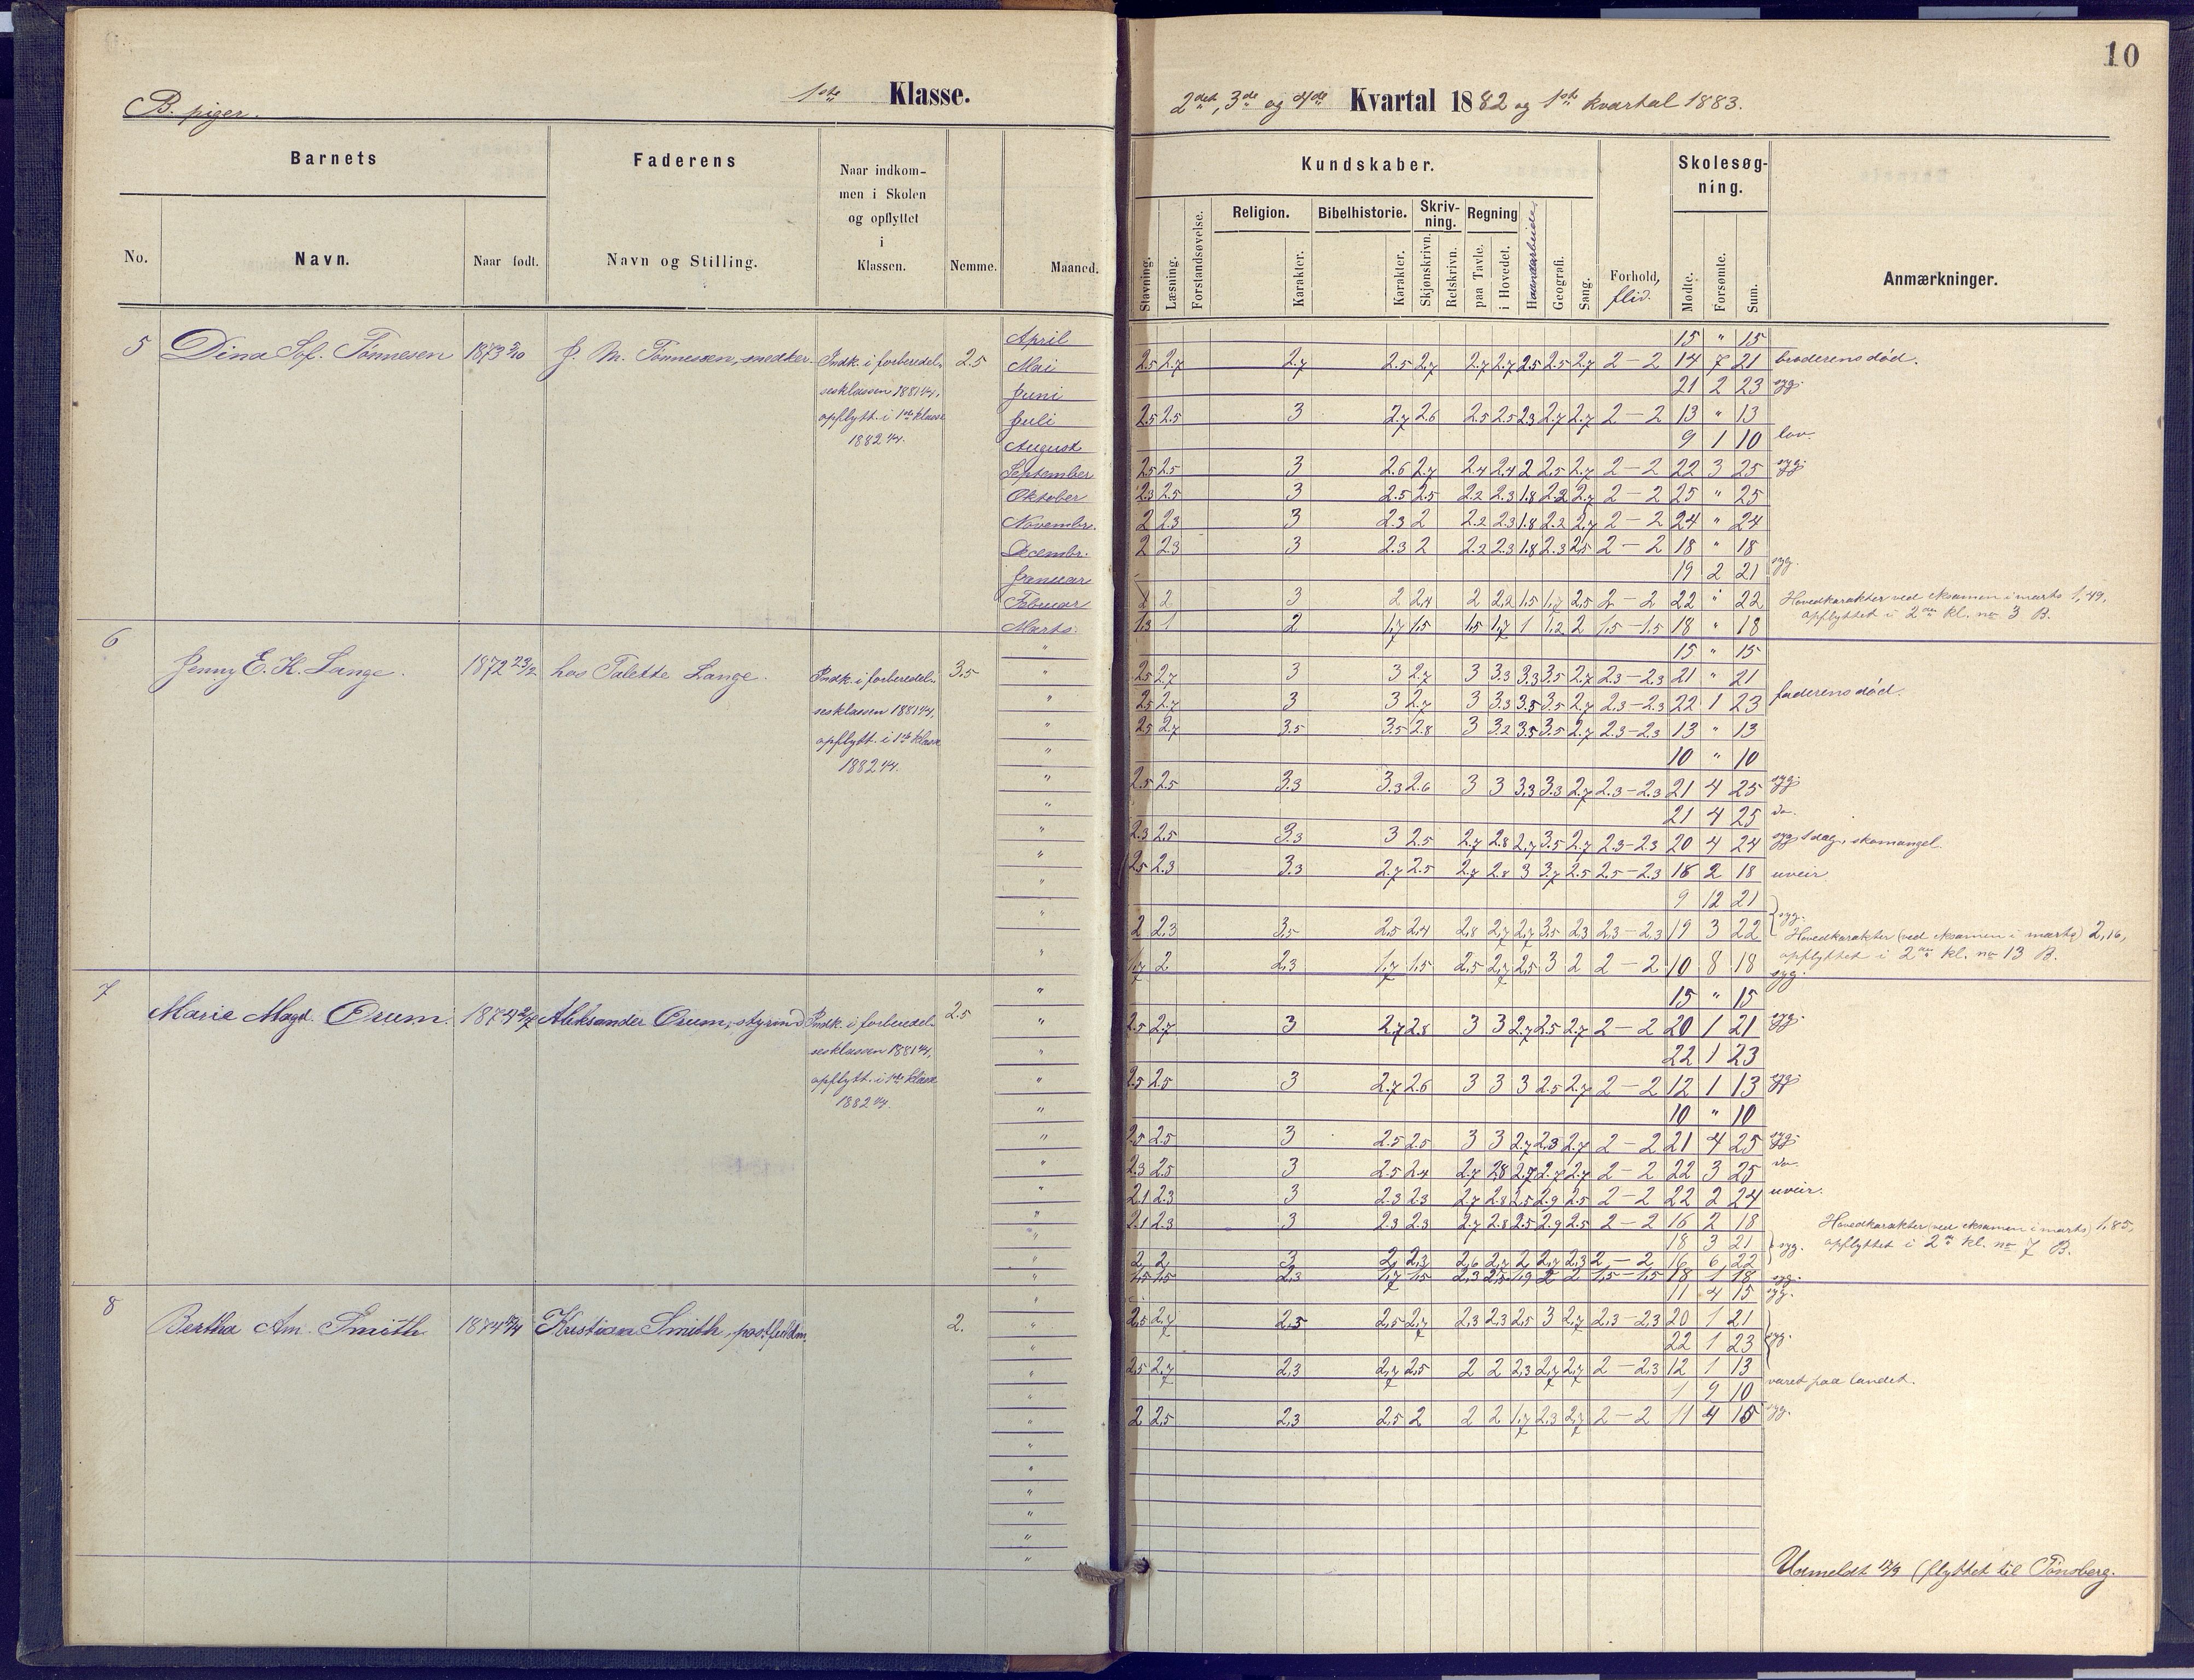 10
B. piger. 1ste Klasse.
2det, 3de og 4de Kvartal 1882 og 1ste kvartal 1883.
Barnets Faderens Naar indkommen i Skolen og opflyttet i Klassen. Nemme. Maaned.
No. Navn. Naar født. Navn og Stilling.
Kundskaber. Forhold, flid. Skolesøgning. Anmærkninger.
Stavning. Læsning. Forstandsøvelse. Religion. Karakter. Bibelhistorie. Karakter. Skrivning. Skjønskrivn. Retskrivn. Regning paa Tavle. i Hovedet. Haandarbeide. Geografi. Sang. Mødte. Forsømte. Sum.
5 Dina Sof. Tønnesen 1873 J. M. Tønnessen, snedker. Indk. i forberedel-
sesklassen 1881
opflytt. i 1ste klasse
1882
2.5
April 15 " 15
Mai 2.5 2.7 2.7 2.5 2.7 2.7 2.7 2.5 2.5 2.7 2 – 2 14 7 21 broderens død.
Juni 21 2 23 syg.
Juli 2.5 2.5 3 2.7 2.6 2.5 2.5 2.3 2.7 2.7 2 – 2 13 " 13
August 9 1 10 lov.
September 2.5 2.5 3 2.6 2.7 2.4 2.4 2 2.5 2.7 2 – 2 22 3 25 syg.
Oktober 2.3 2.5 3 2.5 2.5 2.2 2.3 1.8 2.2 2.7 2 – 2 25 " 25
Novembr. 2 2.3 3 2.3 2 2.2 2.3 1.8 2.2 2.7 2 – 2 24 " 24
Decembr. 2 2.3 3 2.3 2 2.2 2.3 1.8 2.3 2.5 2 – 2 18 " 18
Januar 19 2 21 syg.
Februar 2 2 3 2 2.4 2 2.2 1.5 1.7 2.5 2 – 2 22 " 22 Hovedkarakter ved eksamen i marts 1,49,
Marts 1.3 1 2 1,7 1,5 1.5 1,7 1 1,2 2 1,5 – 1.5 18 " 18 opflyttet i 2den kl. no 3 B.
6 Jenny E. K. Lange. 1872 23/2 hos Talette Lange. Indk. i forberedel-
sesklassen 1881
opflytt. i 1ste klasse
1882
3.5
" 15 " 15
" 2.5 2.7 3 3 2.7 3 3.3 3.3 3.5 2.7 2.3 – 2.3 21 " 21
" 2.5 2.7 3 3 2.7 3 3.3 3.5 3.5 2.7 2.3 – 2.3 22 1 23 faderens død.
" 2.5 2.7 3.5 3.5 2.8 3 3.2 3.5 3.5 2.7 2.3 – 2.3 13 " 13
" 10 " 10
" 2.5 2.5 3.3 3.3 2.6 3 3 3.3 3.3 2.7 2.3 – 2.3 21 4 25 syg.
" 21 4 25 do.
" 2.3 2.5 3.3 3 2.5 2.7 2.8 2.7 3.5 2.7 2.3 – 2.3 20 4 24 syg 1 dag, skomangel.
" 2.5 2.3 3.3 2.7 2.5 2.7 2.8 3 3.7 2.5 2.5 – 2.3 16 2 18 uveir.
" 9 12 21
" 2 2,3 3,5 2,5 2,4 2,8 2,7 2,7 3,5 2,3 2,3 – 2,3 19 3 22 syg. Hovedkarakter (ved eksamen i marts) 2,16,
" 1,7 2 2,3 1,7 1,5 2,5 2,7 2,5 3 2 2 – 2 10 8 18 syg. opflyttet i 2den kl. no 13 B.
7 Marie Magd. Ørum. 1874 Aleksander Ørum, styrmd Indk. i forberedel-
sesklassen 1881
opflytt. i 1ste klasse
1882
2.5
" 15 " 15
" 2.5 2.7 3 2.7 2.8 3 3 2.7 2.5 2.7 2 – 2 20 1 21 syg.
" 22 1 23
" 2.5 2.5 3 2.7 2.6 3 3 3 2.5 2.7 2 – 2 12 1 13 syg.
" 10 " 10
" 2.5 2.5 3 2.5 2.5 3 3 2.7 2.3 2.7 2 – 2 21 4 25 syg.
" 2.3 2.5 3 2.5 2.4 2.7 2.8 2.7 2.7 2.7 2 – 2 22 3 25 do.
" 2.1 2.3 3 2.3 2.3 2.7 2.8 2.5 2.9 2.5 2 – 2 22 2 24 uveir.
" 2.1 2.3 3 2.3 2.3 2.7 2.8 2.5 2.9 2.5 2 – 2 16 2 18
" 18 3 21 syg. Hovedkarakter (ved eksamen i marts) 1,85,
" 2, 2, 3 2, 2,3 2,6 2,7 2, 2,7 2,3 2 – 2 16 6 22 opflyttet i 2den kl. no 7 B.
" 1,5 1,5 2,3 1,7 1,5 2,3 1,9 2 2 1,5 – 1,5 18 1 18 syg.
8 Bertha Am. Smith 1874 Kristian Smith, postfuldm. 2.
" 11 4 15 syg.
" 2,5 2,7 2,5 2,5 2,7 2,3 2,3 2,5 3 2,7 2,3 – 2,3 20 1 21
" 22 1 23 syg.
" 2,5 2,7 2,3 2,7 2,5 2 2 2,3 2,7 2,7 2 – 2,3 12 1 13
" 1 9 10 været paa landet.
" 2 2,5 2,3 2,5 2 2 2 1,7 2,3 2,7 2 – 2 11 4 15 syg.
"
"
"
"
"
"
Udmeldt (flyttet til Tønsberg.